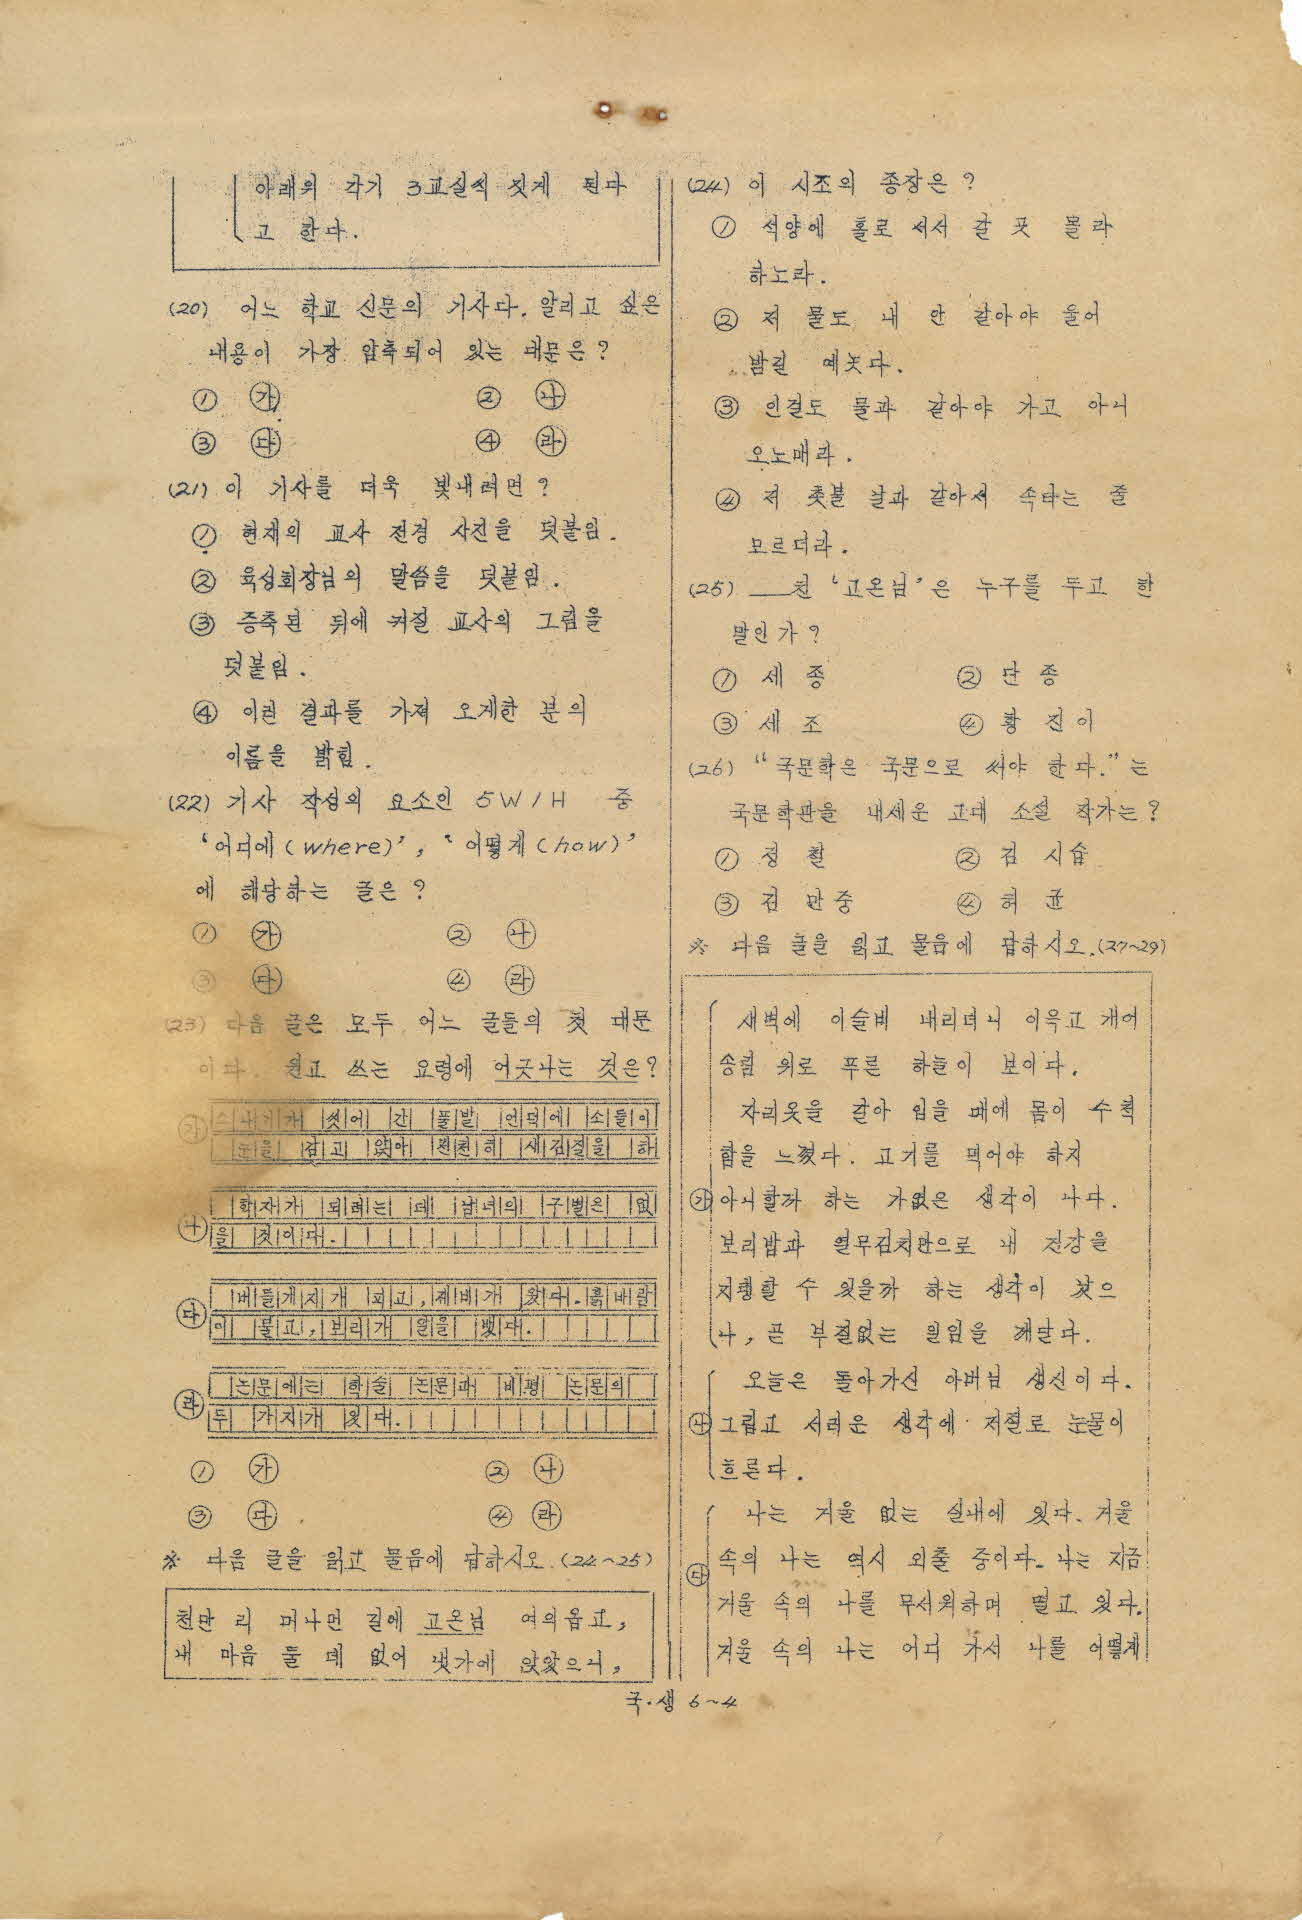 아래의 각기 3교실씩 짓게 된다
고 한다.
(20) 어느 학교 신문의 기사다. 알리고 싶은
내용이 가장 압축되어 있는 대문은?
① ㉮ ② ㉯
③ ㉰ ④ ㉱
(21) 이 기사를 더욱 빛내려면?
① 현재의 교사 전경 사진을 덧붙임.
② 육성회장님의 말씀을 덧붙임.
③ 증축된 뒤에 커질 교사의 그림을
덧붙임.
④ 이런 결과를 가져 오게한 분의
이름을 밝힘.
(22) 기사 작성의 요소인 5W1H 중
‘어디에(where)’, ‘어떻게(how)’
에 해당하는 글은?
① ㉮ ② ㉯
③ ㉰ ④ ㉱
(23) 다음 글은 모두 어느 글들의 첫 대문
이다. 원고 쓰는 요령에 어긋나는 것은?
㉮ 소내기가 씻어 간 풀밭 언덕에 소들이
눈을 감고 앉아 천천히 새김질을 하
㉯ 학자가 되려는데 남녀의 구별은 없
을 것이다.
㉰ 버들개지가 피고, 제비가 왔다. 흙바람
이 불고, 보리가 알을 뱄다.
㉱ 논문에는 학술 논문과 비평 논문의
두 가지가 있다.
① ㉮ ② ㉯
③ ㉰ ④ ㉱
※ 다음 글을 읽고 물음에 답하시오.(24~25)
천만 리 머나먼 길에 고온님 여의옵고,
내 마음 둘 데 없어 냇가에 앉았으니,
(24) 이 시조의 종장은?
① 석양에 홀로 서서 갈 곳 몰라
하노라.
② 저 물도 내 안 같아야 울어
밤길 예놋다.
③ 인걸도 물과 같아야 가고 아니
오노매라.
④ 저 촛불 날과 같아서 속타는 줄
모르더라.
(25) ___친 ‘고온님’은 누구를 두고 한
말인가?
① 세종 ② 단종
③ 세조 ④ 황진이
(26) “국문학은 국문으로 써야 한다.”는
국문학관을 내세운 고대 소설 작가는?
① 정철 ② 김시습
③ 김만중 ④ 허균
※ 다음 글을 읽고 물음에 답하시오.(27~29)
새벽에 이슬비 내리더니 이윽고 개어
송림 위로 푸른 하늘이 보이다.
자리옷을 갈아 입을 때에 몸이 수척
함을 느꼈다. 고기를 먹어야 하지
㉮ 아니할까 하는 가없은 생각이 나다.
보리밥과 열무김치만으로 내 건강을
지탱할 수 있을까 하는 생각이 낫으
나, 곧 부질없는 일임을 깨닫다.
오늘은 돌아가신 아버님 생신이다.
㉯ 그립고 서러운 생각에 저절로 눈물이
흐른다.
나는 거울 없는 실내에 있다. 거울
속의 나는 역시 외출 중이다. 나는 지금
㉰ 거울 속의 나를 무서워하며 떨고 있다.
거울 속의 나는 어디 가서 나를 어떻게
국·생 6~4